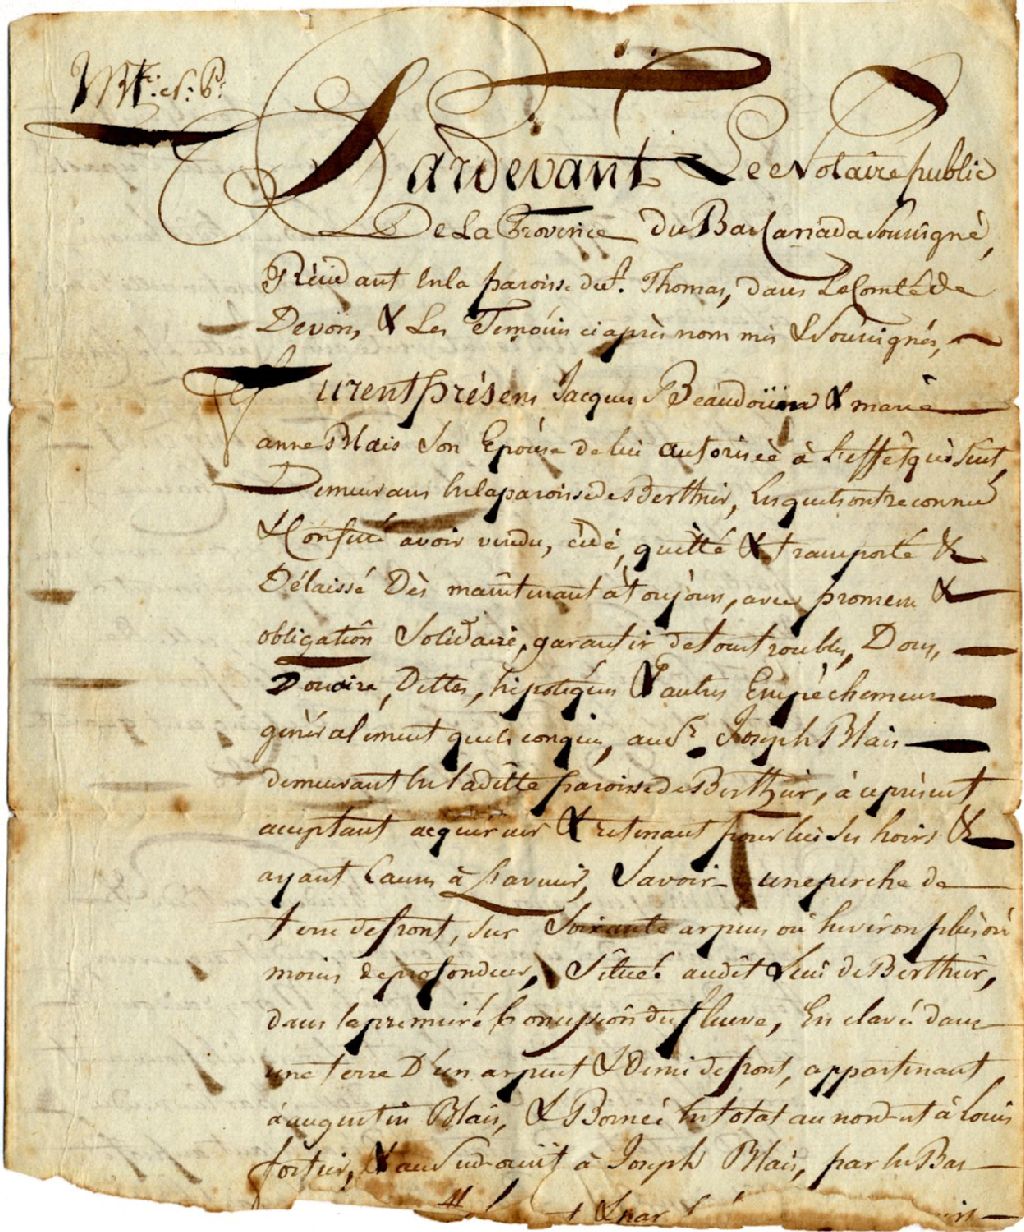 Pardevant Le Notaire public
De La Province du Bas Canada Soussigné,
Résidant En la paroisse de St. Thomas, dans Le Comté de
Devon, & Les Temoins ci après nommés & Soussignés,
Furent présens, Jacques Beaudoüin & marie
anne Blais Son Epouse de lui autorisée à L'effet qui suit,
Demeurans En la paroisse de Berthier, Lesquels ont reconnu
& Confessé avoir vendu, cédé, quitté & transporté &
Délaissé Dès maintenant à toujours, avec promesse &
obligation Solidaire, garantir de tous troubles, Dons,
Douaire, Dettes, hipotèques & autres Empêchemens
généralement quelconques, au Sr. Joseph Blais
demeurant En la ditte paroisse de Berthier, à ce présent
acceptant acquereur & retenant pour lui ses hoirs &
ayant Causes à L'avenir, Savoir une perche de
terre de front, sur Soixante arpens ou Environ plus où
moins de profondeur, Située audit lieu de Berthier,
dans la premiere Concession du fleuve, Enclavée dans
une terre D'un arpent & demi de front, appartenant
à augustin Blais, & Bornée au nord est à Louis
fortier, & au Sud ouüst à Joseph Blais, par le Bas
& par